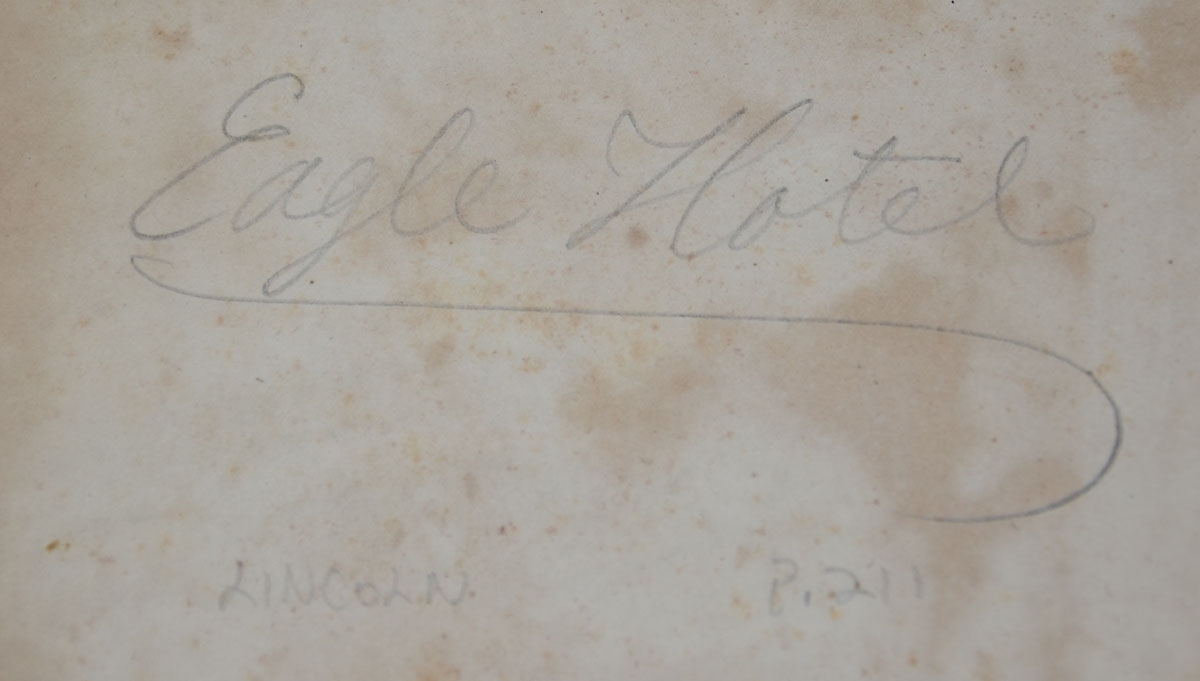 Eagle Hotel
LINCOLN P. 211